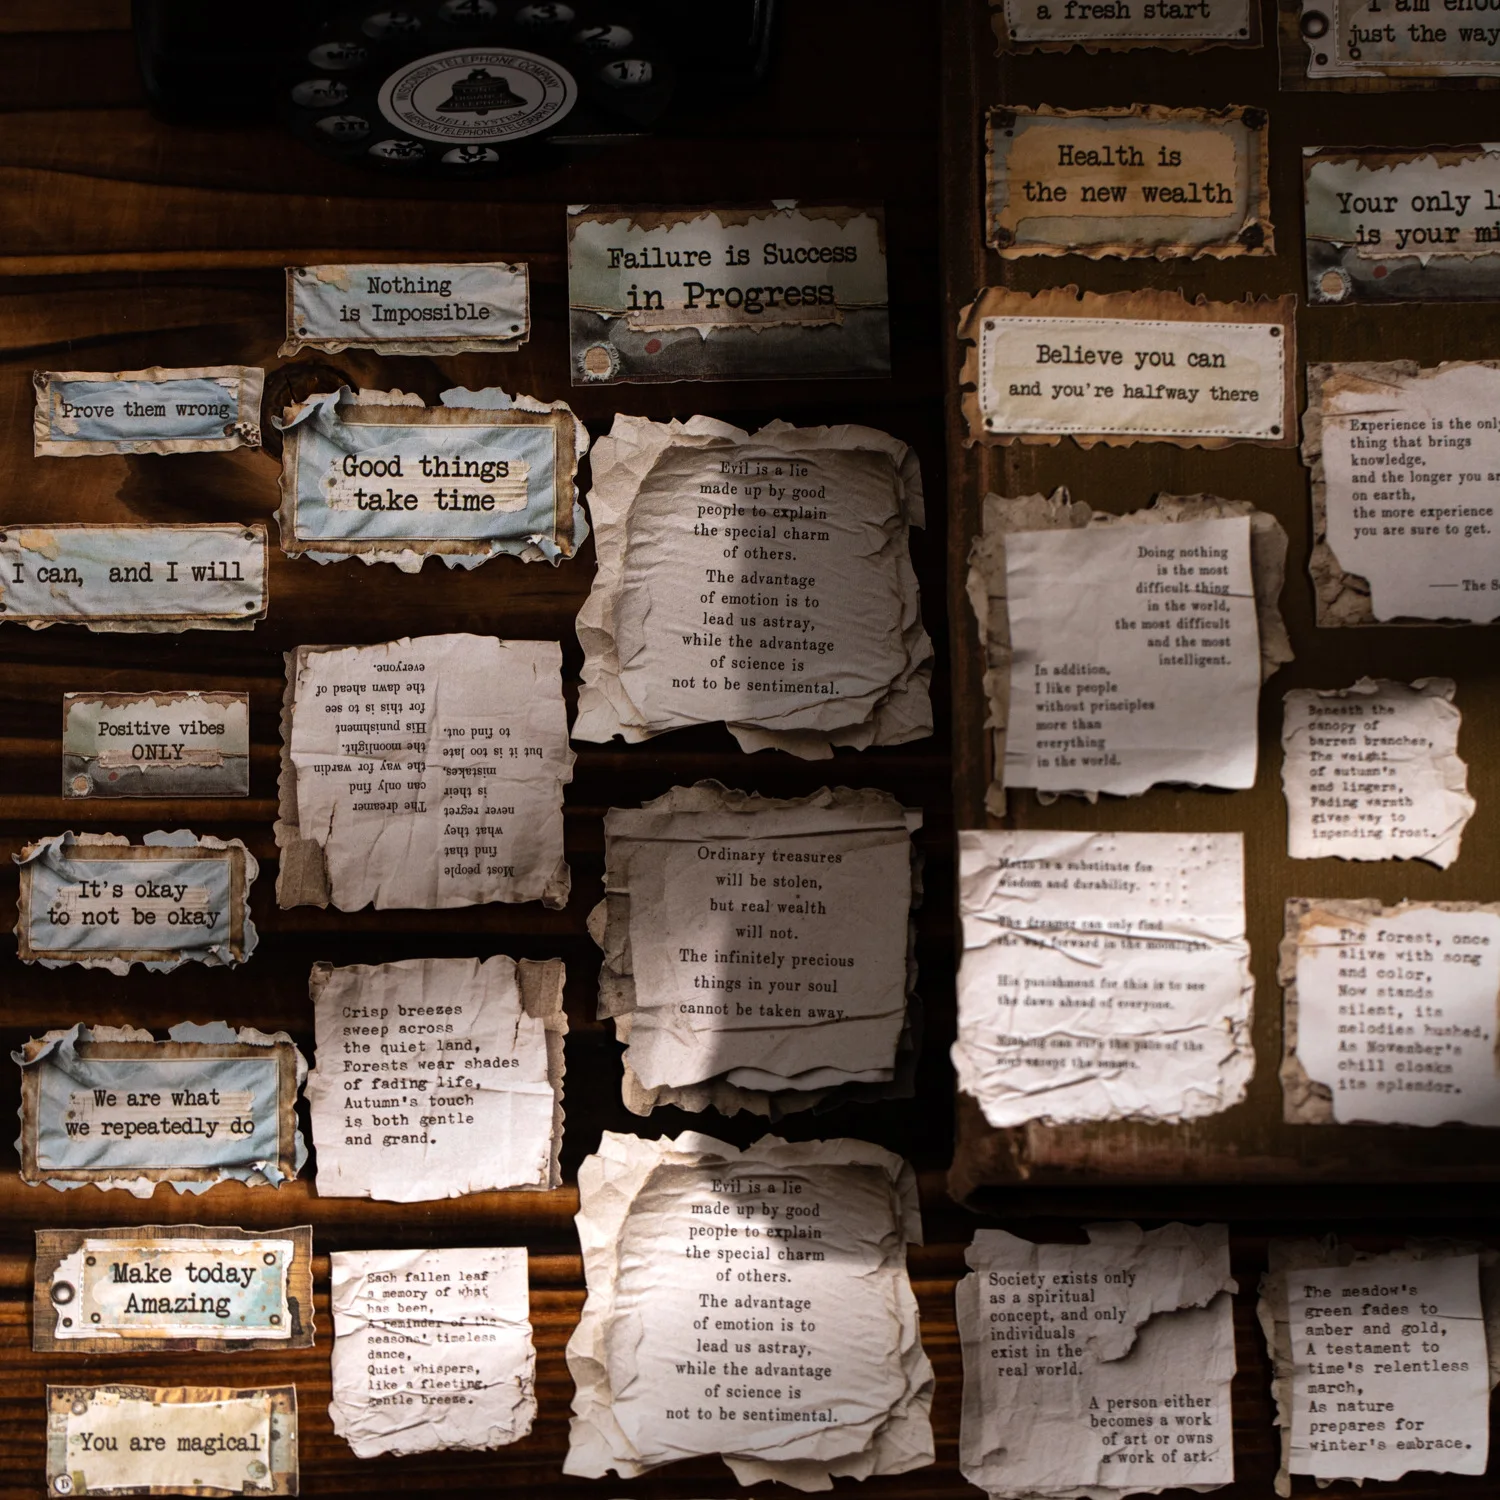 4
3
2
1
WISCONSIN TELEPHONE COMPANY
LONG
DISTANCE
TELEPHONE
BELL SYSTEM
AMERICAN TELEPHONE & TELEGRAPH CO
a fresh start
I am
just the way
Health is
the new wealth
Your only
is your
Nothing
is Impossible
Failure is Success
in Progress
Believe you can
and you're halfway there
Prove them wrong
Good things
take time
I can, and I will
Evil is a lie
made up by good
people to explain
the special charm
of others.
The advantage
of emotion is to
lead us astray,
while the advantage
of science is
not to be sentimental.
Experience is the only
thing that brings
knowledge,
and the longer you
on earth,
the more experience
you are sure to get.
—— The
Doing nothing
is the most
difficult thing
in the world,
the most difficult
and the most
intelligent.
In addition,
I like people
without principles
more than
everything
in the world.
Positive vibes
ONLY
Most people
find that
what they
never regret
is their
mistakes,
but it is too late
to find out.
The dreamer
can only find
the way for wardin
the moonlight.
His punishment
for this is to see
the dawn ahead of
everyone.
Beneath the
canopy of
barren branches,
The weight
of autumn's
end lingers,
Fading warmth
gives way to
impending frost.
It's okay
to not be okay
Ordinary treasures
will be stolen,
but real wealth
will not.
The infinitely precious
things in your soul
cannot be taken away.
is a substitute for
wisdom and durability.
The dreamer can only find
the way forward in the moonlight.
His punishment for this is to see
the dawn ahead of everyone.
Nothing can cure the pain of the
soul except the senses.
The forest, once
alive with song
and color,
Now stands
silent, its
melodies hushed,
As November's
chill cloaks
its splendor.
Crisp breezes
sweep across
the quiet land,
Forests wear shades
of fading life,
Autumn's touch
is both gentle
and grand.
We are what
we repeatedly do
Make today
Amazing
Each fallen leaf
a memory of what
has been,
A reminder of the
seasons' timeless
dance,
Quiet whispers,
like a fleeting,
gentle breeze.
Evil is a lie
made up by good
people to explain
the special charm
of others.
The advantage
of emotion is to
lead us astray,
while the advantage
of science is
not to be sentimental.
Society exists only
as a spiritual
concept, and only
individuals
exist in the
real world.
A person either
becomes a work
of art or owns
a work of art.
The meadow's
green fades to
amber and gold,
A testament to
time's relentless
march,
As nature
prepares for
winter's embrace.
You are magical